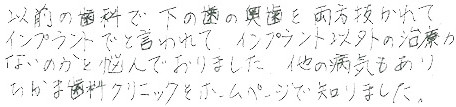 以前の歯科で下の歯の奥歯を両方抜かれて
インプラントでと言われて、インプラント以外の治療が
ないのかと悩んでおりました。他の病気もあり
なかま歯科クリニックをホームページで知りました。